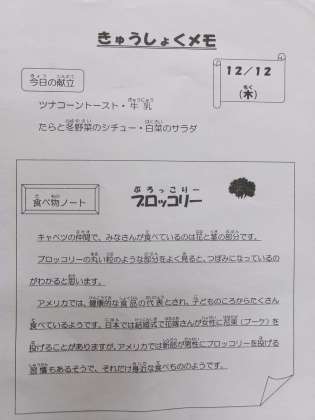 きゅうしょくメモ
今日の献立
12/12
(木)
ツナコーントースト・牛乳
たらと冬野菜のシチュー・白菜のサラダ
食べ物ノート
ブロッコリー
キャベツの仲間で、みなさんが食べているのは花と茎の部分です。
ブロッコリーの丸い粒のような部分をよく見ると、つぼみになっているの
がわかると思います。
アメリカでは、健康的な食品の代表とされ、子どものころからたくさん
食べているようです。日本では結婚式で花嫁さんが女性に花束（ブーケ）を
投げることがありますが、アメリカでは新郎が男性にブロッコリーを投げる
習慣もあるそうで、それだけ身近な食べもののようです。